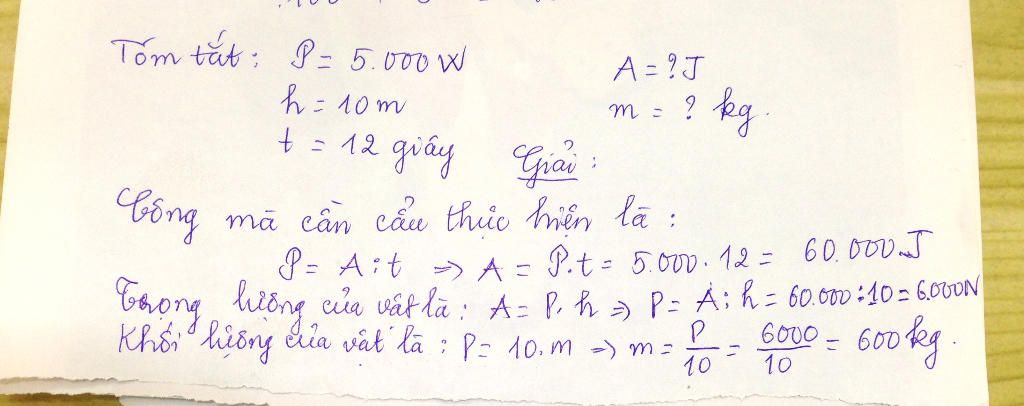 Tóm tắt: P = 5.000 W A = ? J
h = 10 m m = ? kg.
t = 12 giây Giải:
Công mà cần cẩu thực hiện là:
P = A : t => A = P.t = 5.000 . 12 = 60.000 J
Trọng lượng của vật là: A = P. h => P = A : h = 60.000 : 10 = 6.000N
Khối lượng của vật là: P = 10.m => m = P/10 = 6000/10 = 600 kg.